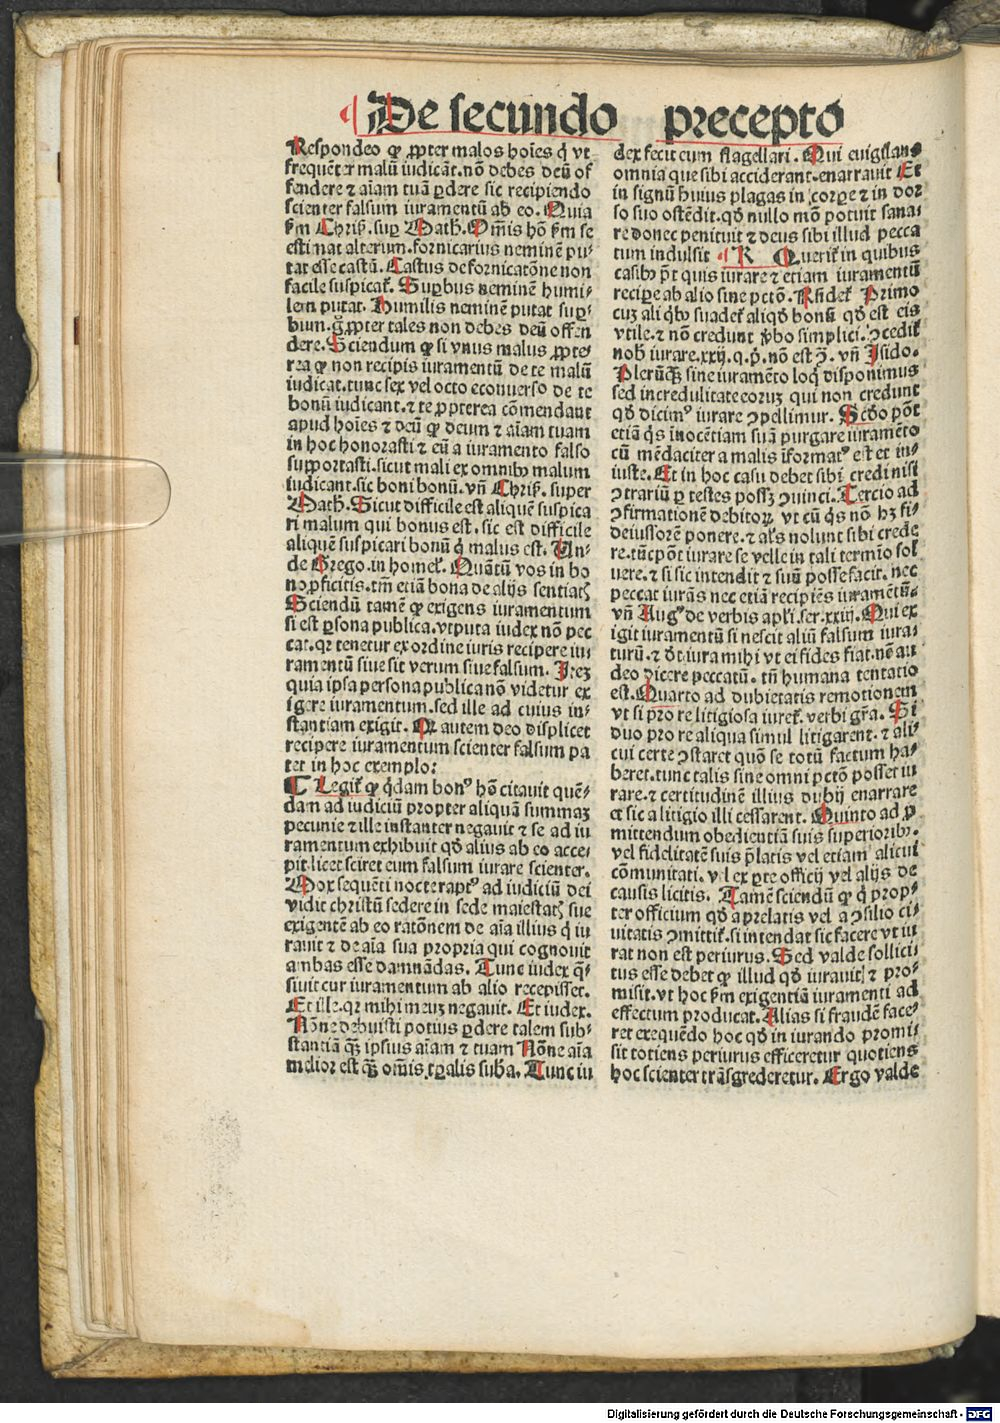 De secundo precepto
Respondeo ꝙ ꝓpter malos hoīes q̇ vt
frequēter malū iudicāt. nō debes deū of
fendere ⁊ aīam tuā ꝑdere sic recipiendo
scienter falsum iuramentū ab eo. Quia
ẜm Chriẜ. suꝑ Math. Om̄is hō ẜm se
estimat alterum. fornicarius neminē pu⸗
tat esse castū. Castus de fornicatōne non
facile suspicat᷑. Suꝑbus neminē humi⸗
lem putat. Humilis neminē putat suꝑ⸗
bum. g̊ ꝓpter tales non debes deū offen
dere. Sciendum ꝙ si vnus malus ꝓpte⸗
rea ꝙ non recipis iuramentū de te malū
iudicat. tunc sex vel octo econuerso de te
bonū iudicant. ⁊ te ꝓpterea cōmendant
apud hoīes ⁊ deū ꝙ deum ⁊ aīam tuam
in hoc honorasti ⁊ eū a iuramento falso
supportasti. sicut mali ex omnibꝫ malum
iudicant. sic boni bonū. vn̄ Chriẜ. super
Math. Sicut difficile est aliquē suspica
ri malum qui bonus est. sic est difficile
aliquē suspicari bonū q̇ malus est. Un⸗
de Grego. in homel᷑. Quātū vos in bo
no ꝓficitis. tm̄ etiā bona de alijs sentiatꝭ
Sciendū tamē ꝙ exigens iuramentum
si est ꝑsona publica. vtputa iudex nō pec
cat. qꝛ tenetur ex ordine iuris recipere iu
ramentū siue sit verum siue falsum. Itēꝫ
quia ipsa persona publica nō videtur ex
igere iuramentum. sed ille ad cuius in⸗
stantiam exigit. Qꝛ autem deo displicet
recipere iuramentum scienter falsum pa
tet in hoc exemplo:
¶ Legit᷑ ꝙ q̇dam bonꝰ hō citauit quē⸗
dam ad iudiciū propter aliquā summaꝫ
pecunie ⁊ ille instanter negauit ⁊ se ad iu
ramentum exhibuit qd̓ alius ab eo acce⸗
pit. licet sciret eum falsum iurare scienter.
Mox sequēti nocte raptꝰ ad iudiciū dei
vidit christū sedere in sede maiestatꝭ sue
exigentē ab eo ratōnem de aīa illius q̇ iu
rauit ⁊ de aīa sua propria qui cognouit
ambas esse damnādas. Tunc iudex q̄⸗
siuit cur iuramentum ab alio recepisset.
Et ille. qꝛ mihi meuꝫ negauit. Et iudex.
Nōne debuisti potius ꝑdere talem sub⸗
stantiā qꝫ̄ ipsius aīam ⁊ tuam Nōne aīa
melior est qꝫ̄ om̄is tꝑalis suba. Tunc iu
dex fecit eum flagellari. Qui euigilans
omnia que sibi acciderant. enarrauit Et
in signū huius plagas in corꝑe ⁊ in dor
so suo ostēdit. qd̓ nullo mō potuit sana⸗
re donec penituit ⁊ deus sibi illud pecca
tum indulsit ¶ K Querit᷑ in quibus
casibꝫ pōt quis iurare ⁊ etiam iuramentū
recipe ab alio sine pctō. Rn̄det᷑ Primo
cuꝫ ali q̇bꝫ suadet᷑ aliqd̓ bonū qd̓ est eis
vtile. ⁊ nō credunt v̓bo simplici. ꝯcedit᷑
nob̄ iurare. xxij. q. pͥ. nō est ꝯ. vn̄ Isido.
Plerūqꝫ sine iuramēto loq̇ disponimus
sed incredulitate eoruꝫ qui non credunt
qd̓ dicimꝰ iurare ꝯpellimur. Scd̓o pōt
etiā q̇s īnocētiam suā purgare iuramēto
cū mēdaciter a malis īformatꝰ est et in⸗
iuste. Et in hoc casu debet sibi credi nisi
ꝯtrariū ꝑ testes possꝫ ꝯuinci. Tercio ad
ꝯfirmationē debitoꝝ vt cū q̇s nō hꝫ fi⸗
deiussorē ponere. ⁊ al̓s nolunt sibi crede
re. tūc pōt iurare se velle in tali termīo sol
uere. ⁊ si sic intendit ⁊ suū posse facit. nec
peccat iurās nec etiā recipiēs iuramētū.
vn̄ Augꝰ de verbis apl̓i. ser. xxiij. Qui ex
igit iuramentū si nescit aliū falsum iura⸗
turū. ⁊ d̓t iura mihi vt ei fides fiat. nē au
deo dicere peccatū. tn̄ humana tentatio
est. Quarto ad dubietatis remotionem
vt si pro re litigiosa iuret᷑. verbi gr̄a. Si
duo pro re aliqua simul litigarent. ⁊ ali⸗
cui certe ꝯstaret quō se totū factum ha⸗
beret. tunc talis sine omni pctō posset iu
rare. ⁊ certitudinē illius dubij enarrare
et sic a litigio illi cessarent. Quinto ad ꝓ
mittendum obedientiā suis superioribꝫ.
vel fidelitatē suis p̄latis vel etiam alicui
cōmunitati. vel ex ꝑte officij vel alijs de
causis licitis. Tamē sciendū ꝙ q̇ prop⸗
ter officium qd̓ a prelatis vel a ꝯsilio ci⸗
uitatis ꝯmittit᷑. si intendat sic facere vt iu
rat non est periurus. Sed valde sollici⸗
tus esse debet ꝙ illud qd̓ iurauit ⁊ pro⸗
misit. vt hoc ẜm exigentiā iuramenti ad
effectum producat. Alias si fraudē face⸗
ret exequēdo hoc qd̓ in iurando promi⸗
sit totiens periurus efficeretur quotiens
hoc scienter trāsgrederetur. Ergo valde
Digitalisierung gefördert durch die Deutsche Forschungsgemeinschaft - DFG